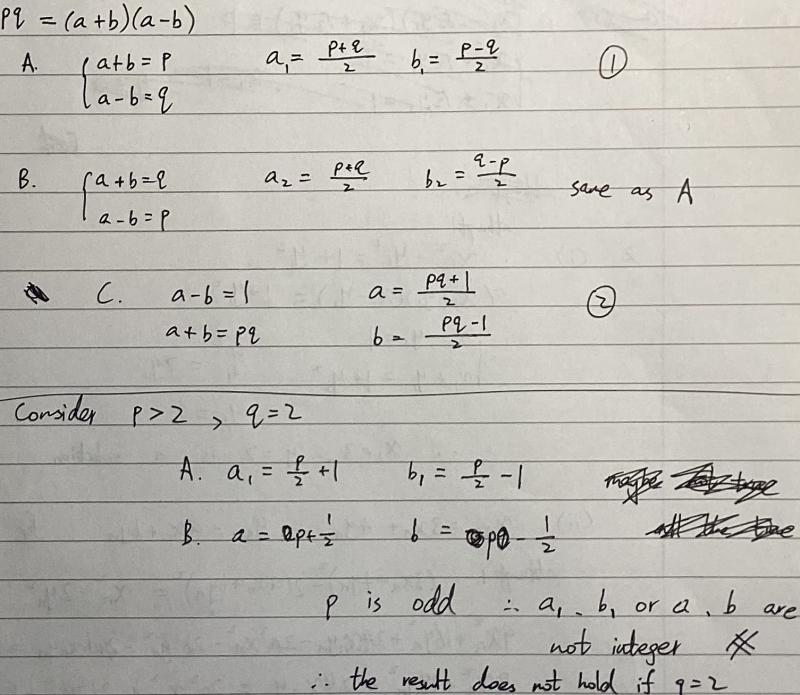 pq = (a+b)(a-b)
A. { a+b = p a₁ = (p+q)/2 b₁ = (p-q)/2 ①
a-b = q
B. { a+b = q a₂ = (p+q)/2 b₂ = (q-p)/2 same as A
a-b = p
C. a-b = 1 a = (pq+1)/2 ②
a+b = pq b = (pq-1)/2
Consider p>2 , q=2
A. a₁ = p/2 + 1 b₁ = p/2 - 1
B. a = p + 1/2 b = p - 1/2
p is odd ∴ a₁, b₁ or a, b are
not integer
∴ the result does not hold if q=2